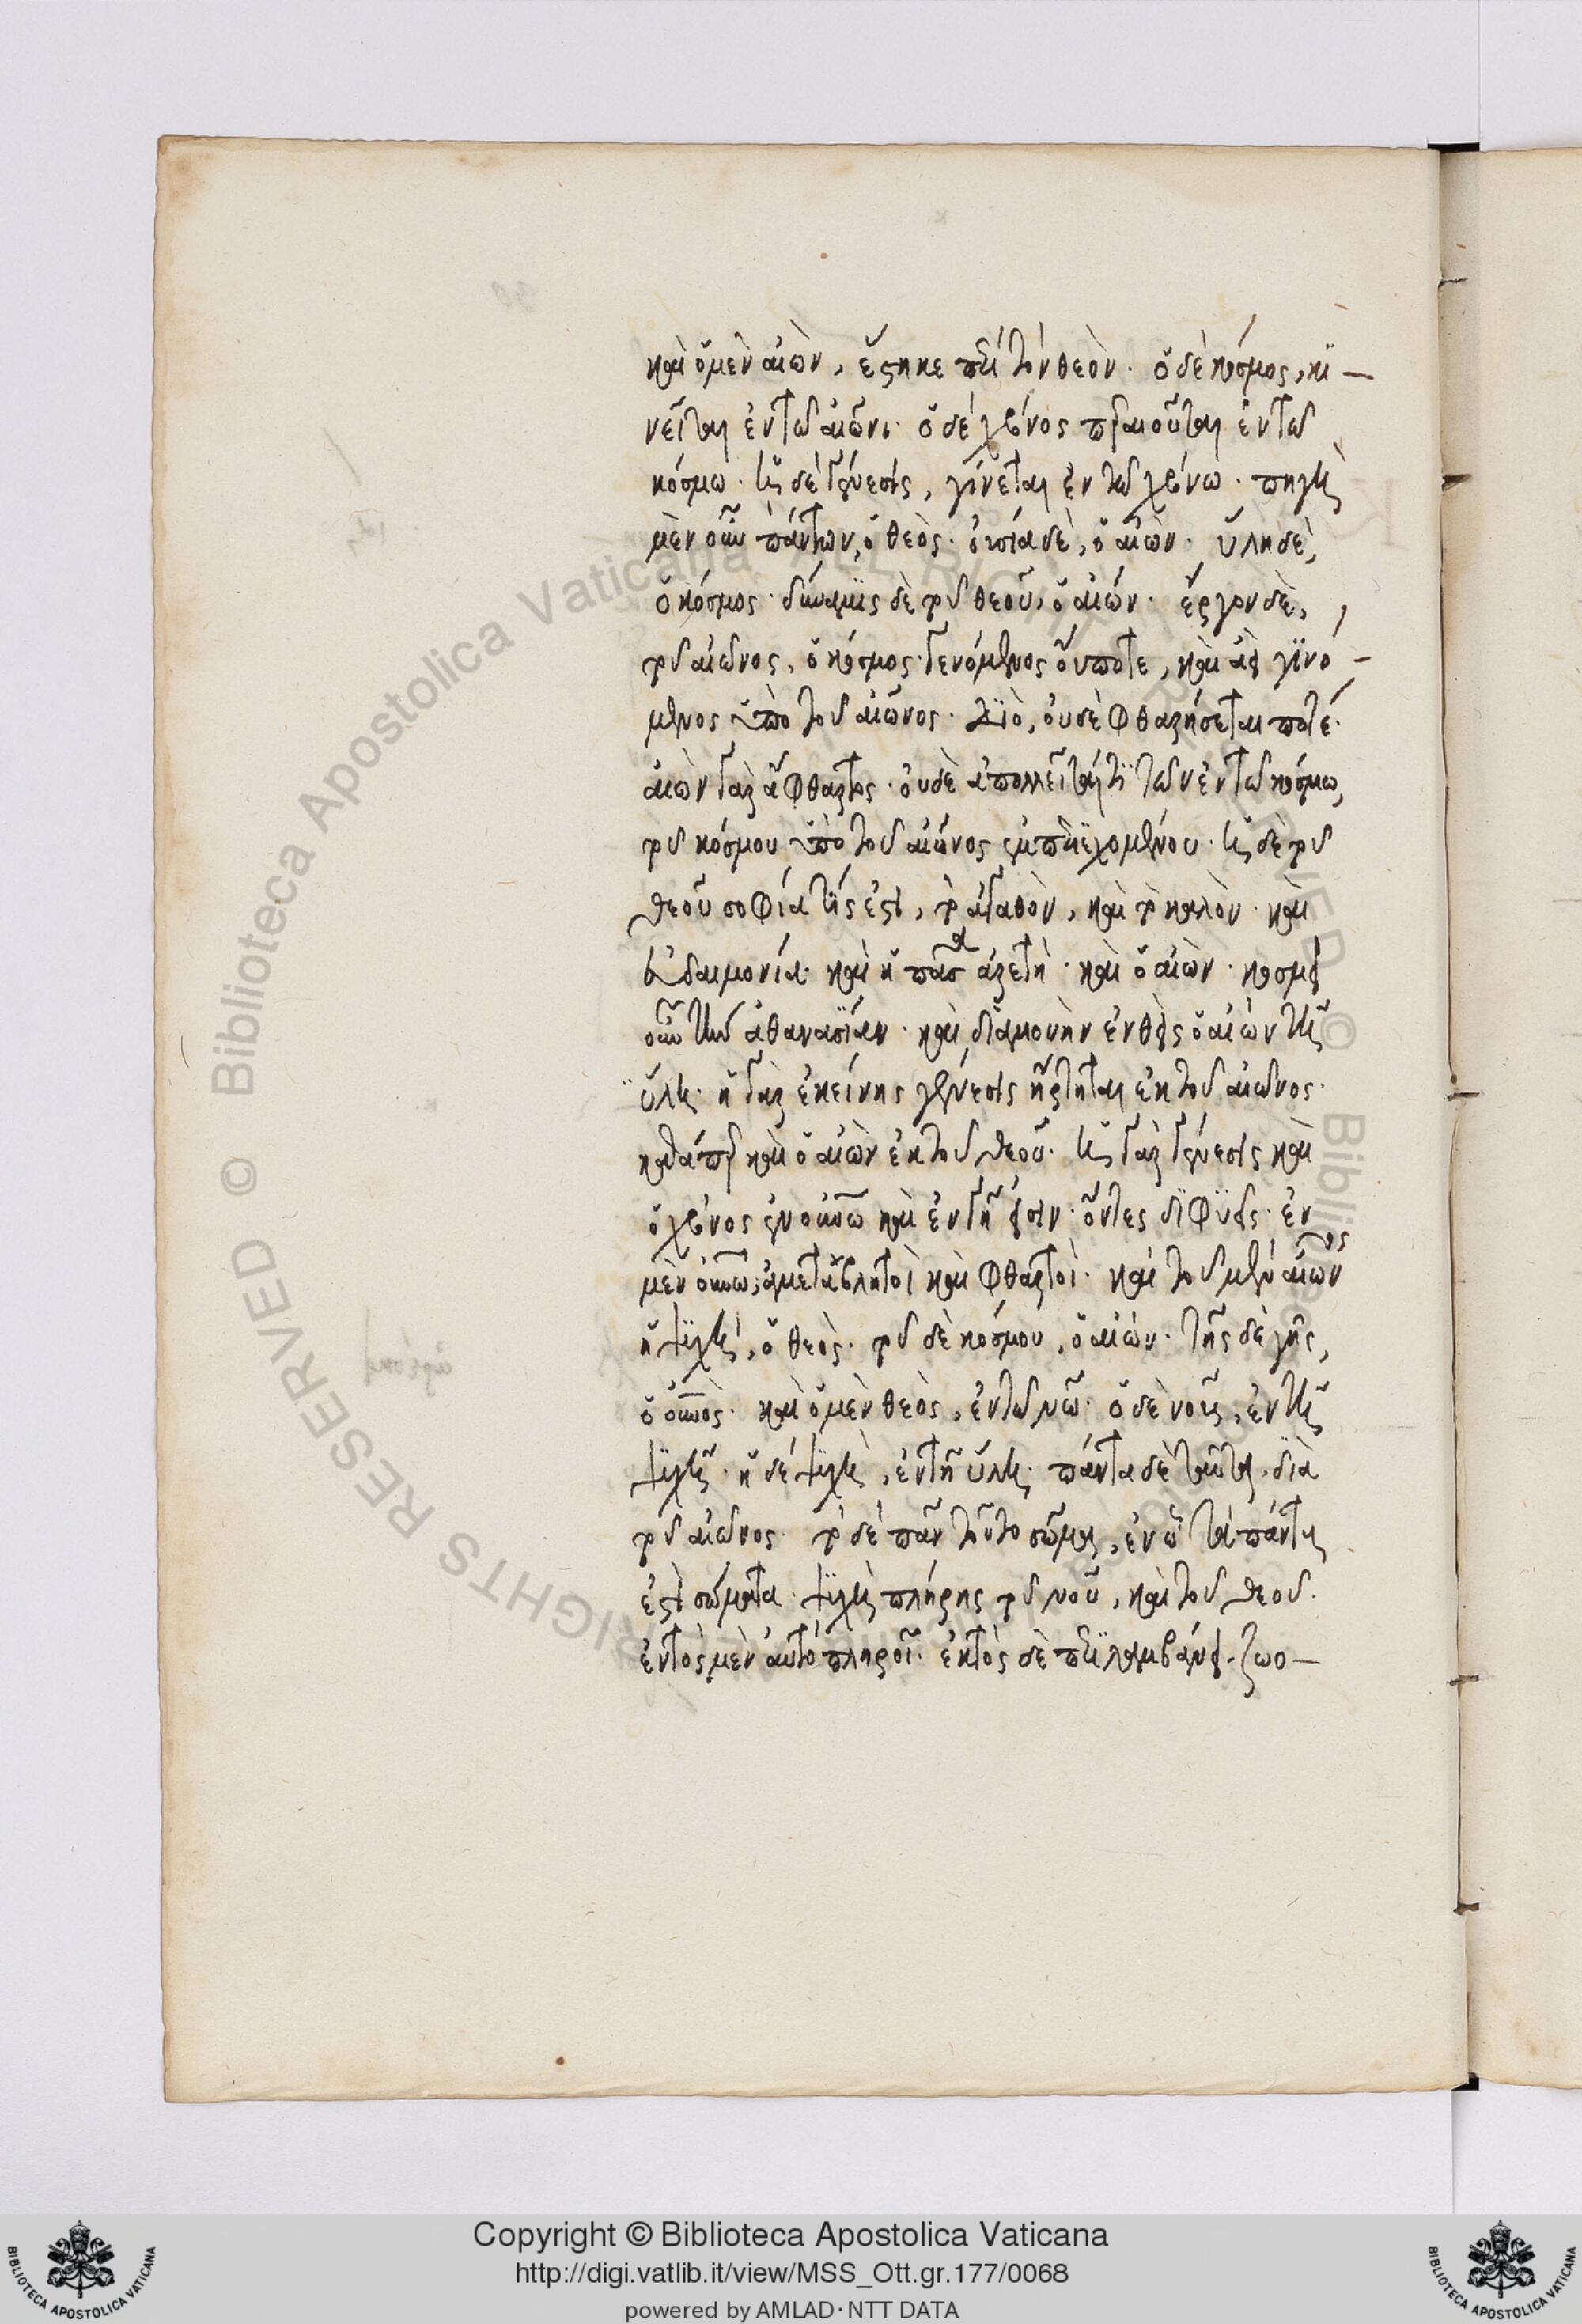 καὶ ὁ μὲν αἰὼν, ἕστηκε περὶ τὸν θεὸν· ὁ δὲ κόσμος, κι –
νεῖται ἐν τῶ αἰῶνι· ὁ δὲ χρόνος περαιοῦται ἐν τῶ
κόσμω· ἡ δὲ γένεσις, γίνεται ἐν τῶ χρόνω· πηγὴ
μὲν οὖν πάντων, ὁ θεὸς· οὐσία δὲ, ὁ αἰὼν· ὕλη δὲ,
ὁ κόσμος· δύναμις δὲ τοῦ θεοῦ, ὁ αἰών· ἔργον δὲ,
τοῦ αἰῶνος, ὁ κόσμος· γενόμενος οὔποτε, καὶ ἀεὶ γινό –
μενος ὑπὸ τοῦ αἰῶνος· διὸ, οὐδὲ φθαρήσεται ποτέ·
αἰὼν γὰρ ἄφθαρτος· οὐδὲ ἀπολλεῖταί τι τῶν ἐν τῶ κόσμω,
τοῦ κόσμου ὑπὸ τοῦ αἰῶνος ἐμπεριεχομένου· ἡ δὲ τοῦ
θεοῦ σοφία τίς ἐστι, τὸ ἀγαθὸν, καὶ τὸ καλὸν· καὶ
εὐδαιμονία· καὶ ἡ πᾶσα ἀρετὴ· καὶ ὁ αἰὼν· κοσμεῖ
οὖν τὴν ἀθανασίαν· καὶ διαμονὴν ἐνθεὶς ὁ αἰὼν τῆ
ὕλη· ἡ γὰρ ἐκείνης γένεσις ἤρτηται ἐκ τοῦ αἰῶνος·
καθάπερ καὶ ὁ αἰὼν ἐκ τοῦ θεοῦ· ἡ γὰρ γένεσις καὶ
ὁ χρόνος ἐν οὐνῶ καὶ ἐν γῆ εἰσιν· ὄντες διφυεῖς· ἐν
μὲν οὐνῶ, ἀμετάβλητοὶ καὶ φθαρτοὶ· καὶ τοῦ μὲν αἰῶνος
ἡ ψυχὴ, ὁ θεὸς· τοῦ δὲ κόσμου, ὁ αἰών· τῆς δὲ γῆς,
ὁ οὐνὸς· καὶ ὁ μὲν θεὸς, ἐν τῶ νῶ· ὁ δὲ νοῦς, ἐν τῆ
ψυχῆ· ἡ δὲ ψυχὴ, ἐν τῆ ὕλη· πάντα δὲ ταῦτα, διὰ
τοῦ αἰῶνος· τὸ δὲ πᾶν τοῦτο σῶμα, ἐν ὧ τὰ πάντα
ἐστὶ σώματα· ψυχὴ πλήρης τοῦ νοῦ, καὶ τοῦ θεοῦ·
ἐντὸς μὲν αὐτὸ πληροῖ· ἐκτὸς δὲ περιλαμβάνει· ζωο –
Copyright © Biblioteca Apostolica Vaticana
http://digi.vatlib.it/view/MSS_Ott.gr.177/0068
powered by AMLAD·NTT DATA